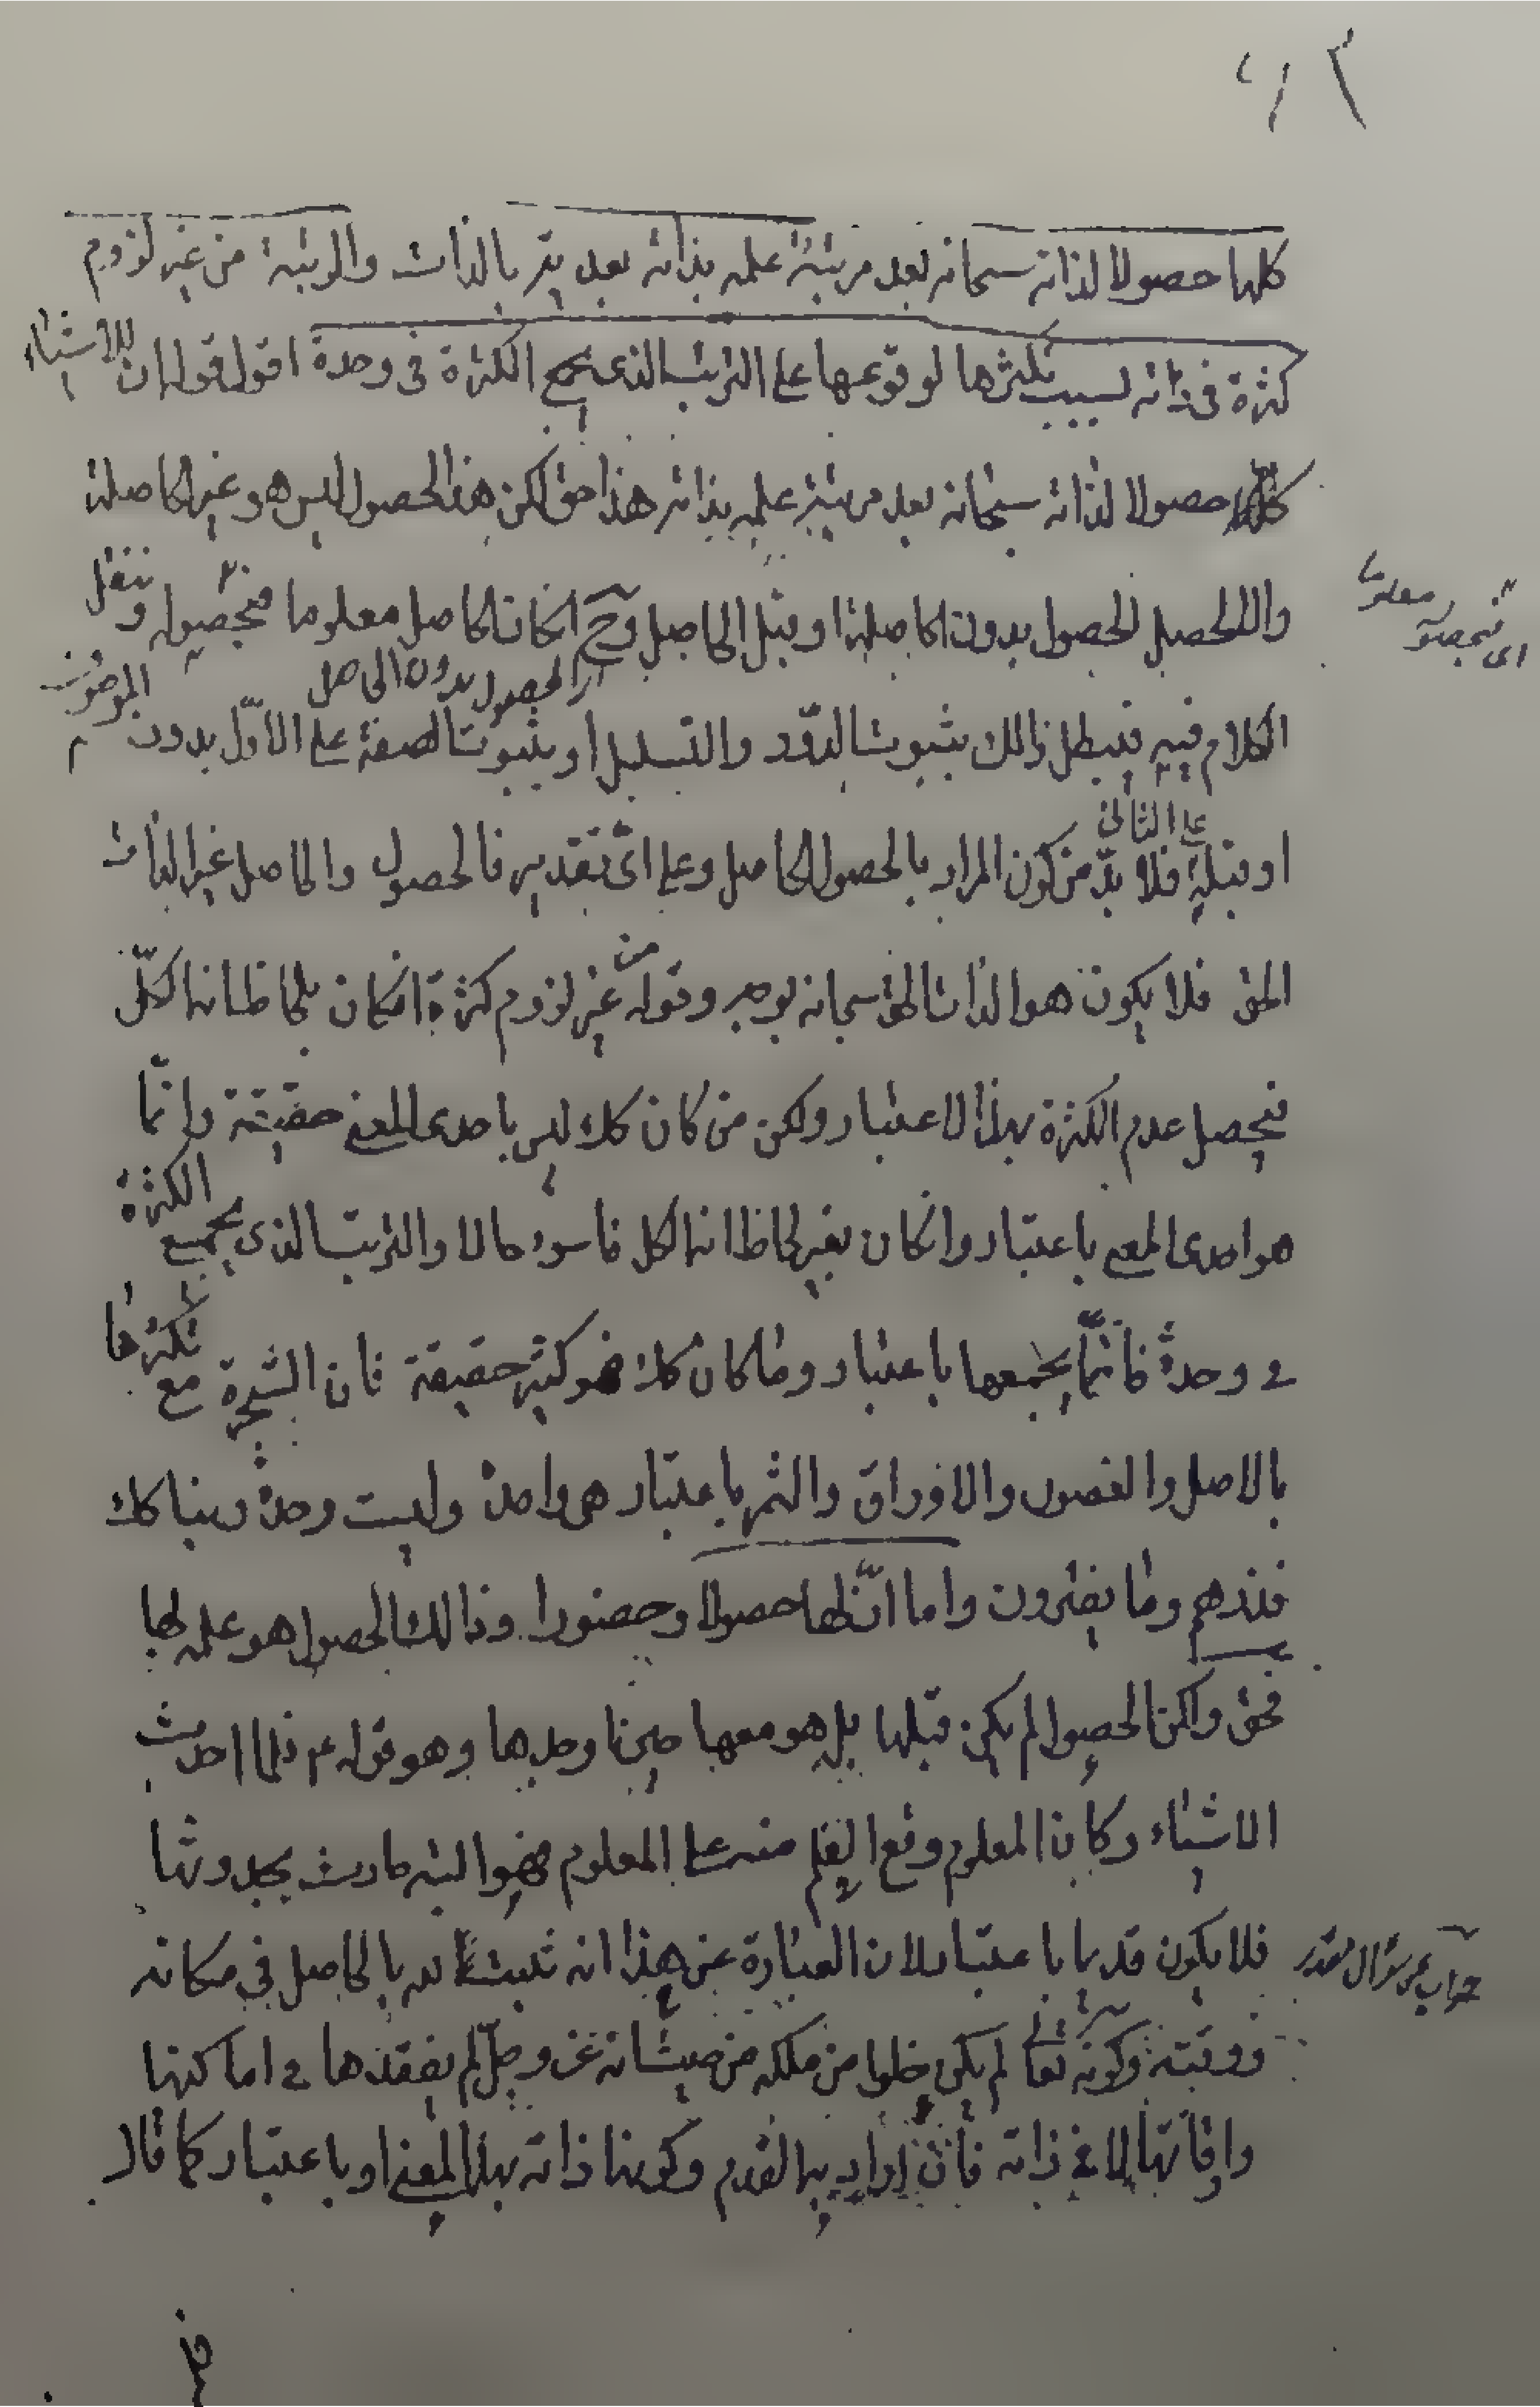 كلها حصولا لذاته سبحانه بعد مرتبة علمه بذاته بعديته بالذات والرتبة من غير لزوم
كثرة في ذاته لسبب تكثرها لوقوعها على الترتيب الذي يجمع الكثرة في وحدة اقول قوله ان للاشياء
كلها حصولا لذاته سبحانه بعد مرتبة علمه بذاته هذا حق لكن هذا الحصول ليس هو غير الحاصلة
والا لحصل الحصول بدون الحاصلة او قبل الحاصل وح انكان الحاصل معلوما فبحصوله وننقل
اى فبحصوله معلوما
الكلام فيه فيبطل ذالك بثبوت الدور والتسلسل او بثبوت الصفة على الاول بدون الموصوف
اى الحصول بدون الحاصل
او قبله فلا بدّ من كون المراد بالحصول الحاصل وعلى اىّ تقدير فالحصول والحاصل غير الذات
على الثانى
الحق فلا يكون هو الذات الحق سبحانه بوجه وقوله من غير لزوم كثرة انكان بلحاظ انه الكلّ
فيحصل عدم الكثرة بهذا الاعتبار ولكن من كان كك ليس باحدى المعنى حقيقة وانّما
هو احدى المعنى باعتبار وانكان بغير لحاظ انه الكل فاسوء حالا والترتيب الذى يجمع الكثرة
في وحدة فانّما يجمعها باعتبار وما كان كك فهو كثير حقيقة فان الشجرة مع تكثرها
بالاصل والغصون والاوراق والثمر باعتبار هى واحدة وليست وحدة ربنا كك
فذرهم وما يفترون واما انّ لها حصولا وحضورا وذالك الحصول هو علمه لها
فحق ولكن الحصول لم يكن قبلها بل هو معها حين اوجدها وهو قوله ع فلما احدث
الاشياء وكان المعلوم وقع العلم منه على المعلوم فهو اليه حادث بحدوثها
فلا يكون قديما باعتبار لان العبارة عن هذا انه ثبت له بالحاصل في مكانه
جواب عن سؤال مقدر
ووقته وكونه تعالى لم يكن خلوا من ملكه من حيث انه عز وجلّ لم يفقدها في اماكنها
واوقاتها لا في ذاته فان اراد بها القدم وكونها ذاته بهذا المعنى او باعتبار كما قال